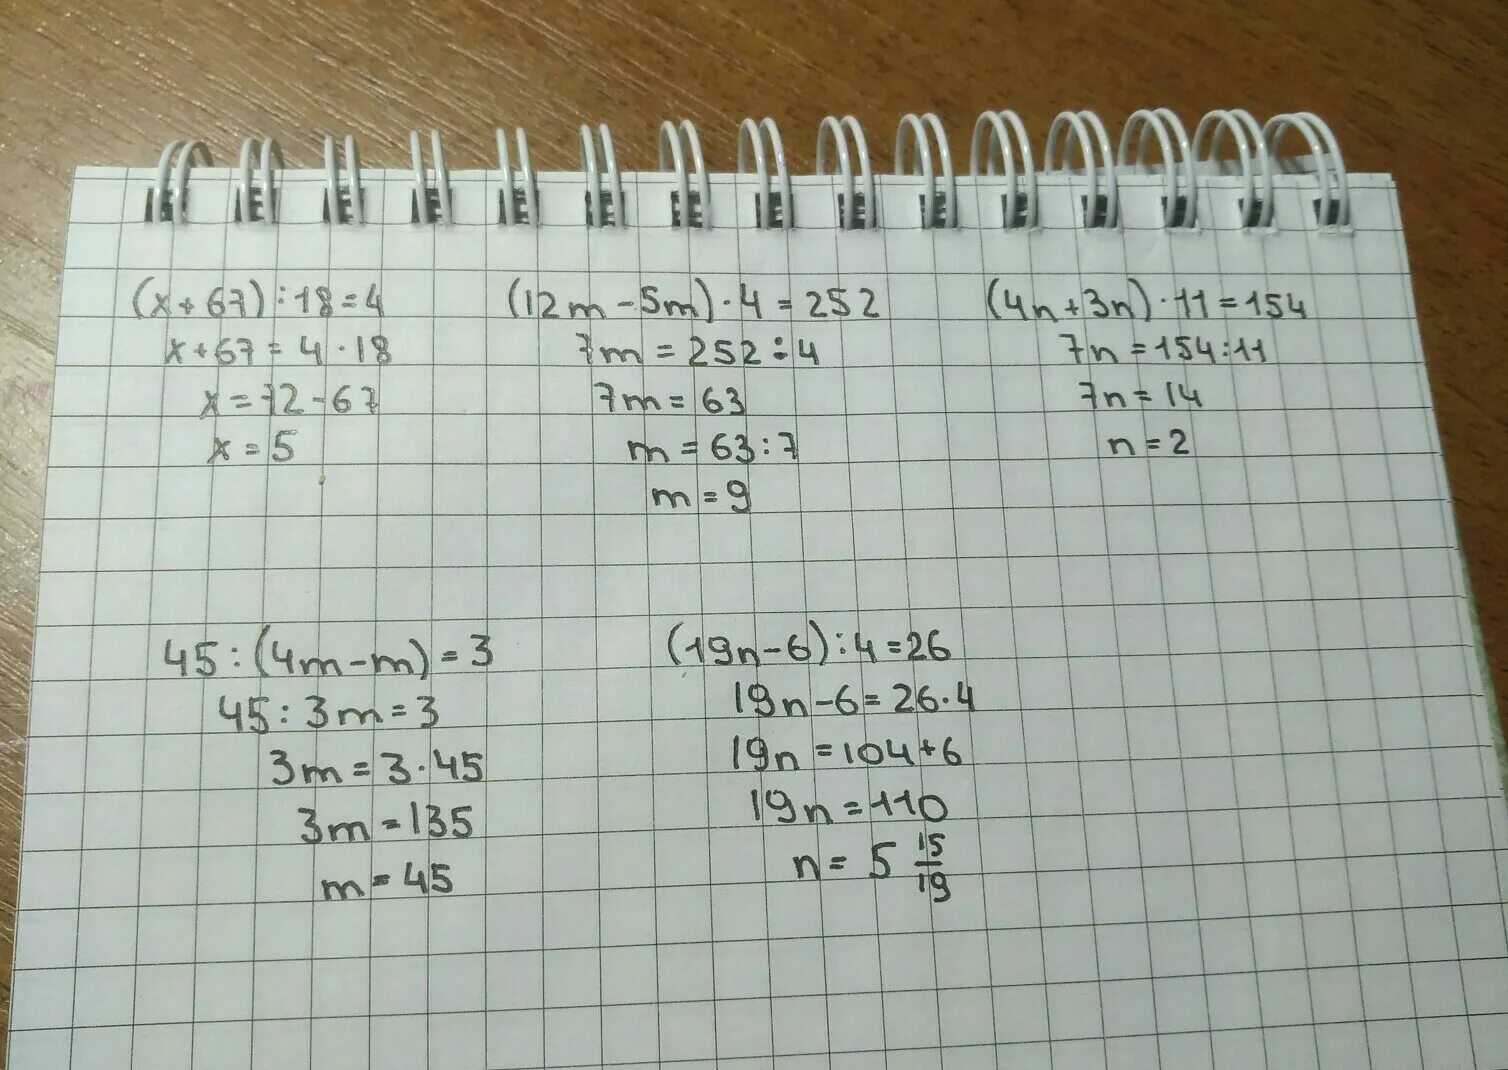 (x+67):18=4
x+67=4·18
x=72-67
x=5
(12m-5m)·4=252
7m=252:4
7m=63
m=63:7
m=9
(4n+3n)·11=154
7n=154:11
7n=14
n=2
45:(4m-m)=3
45:3m=3
3m=3·45
3m=135
m=45
(19n-6):4=26
19n-6=26·4
19n=104+6
19n=110
n=5 15/19